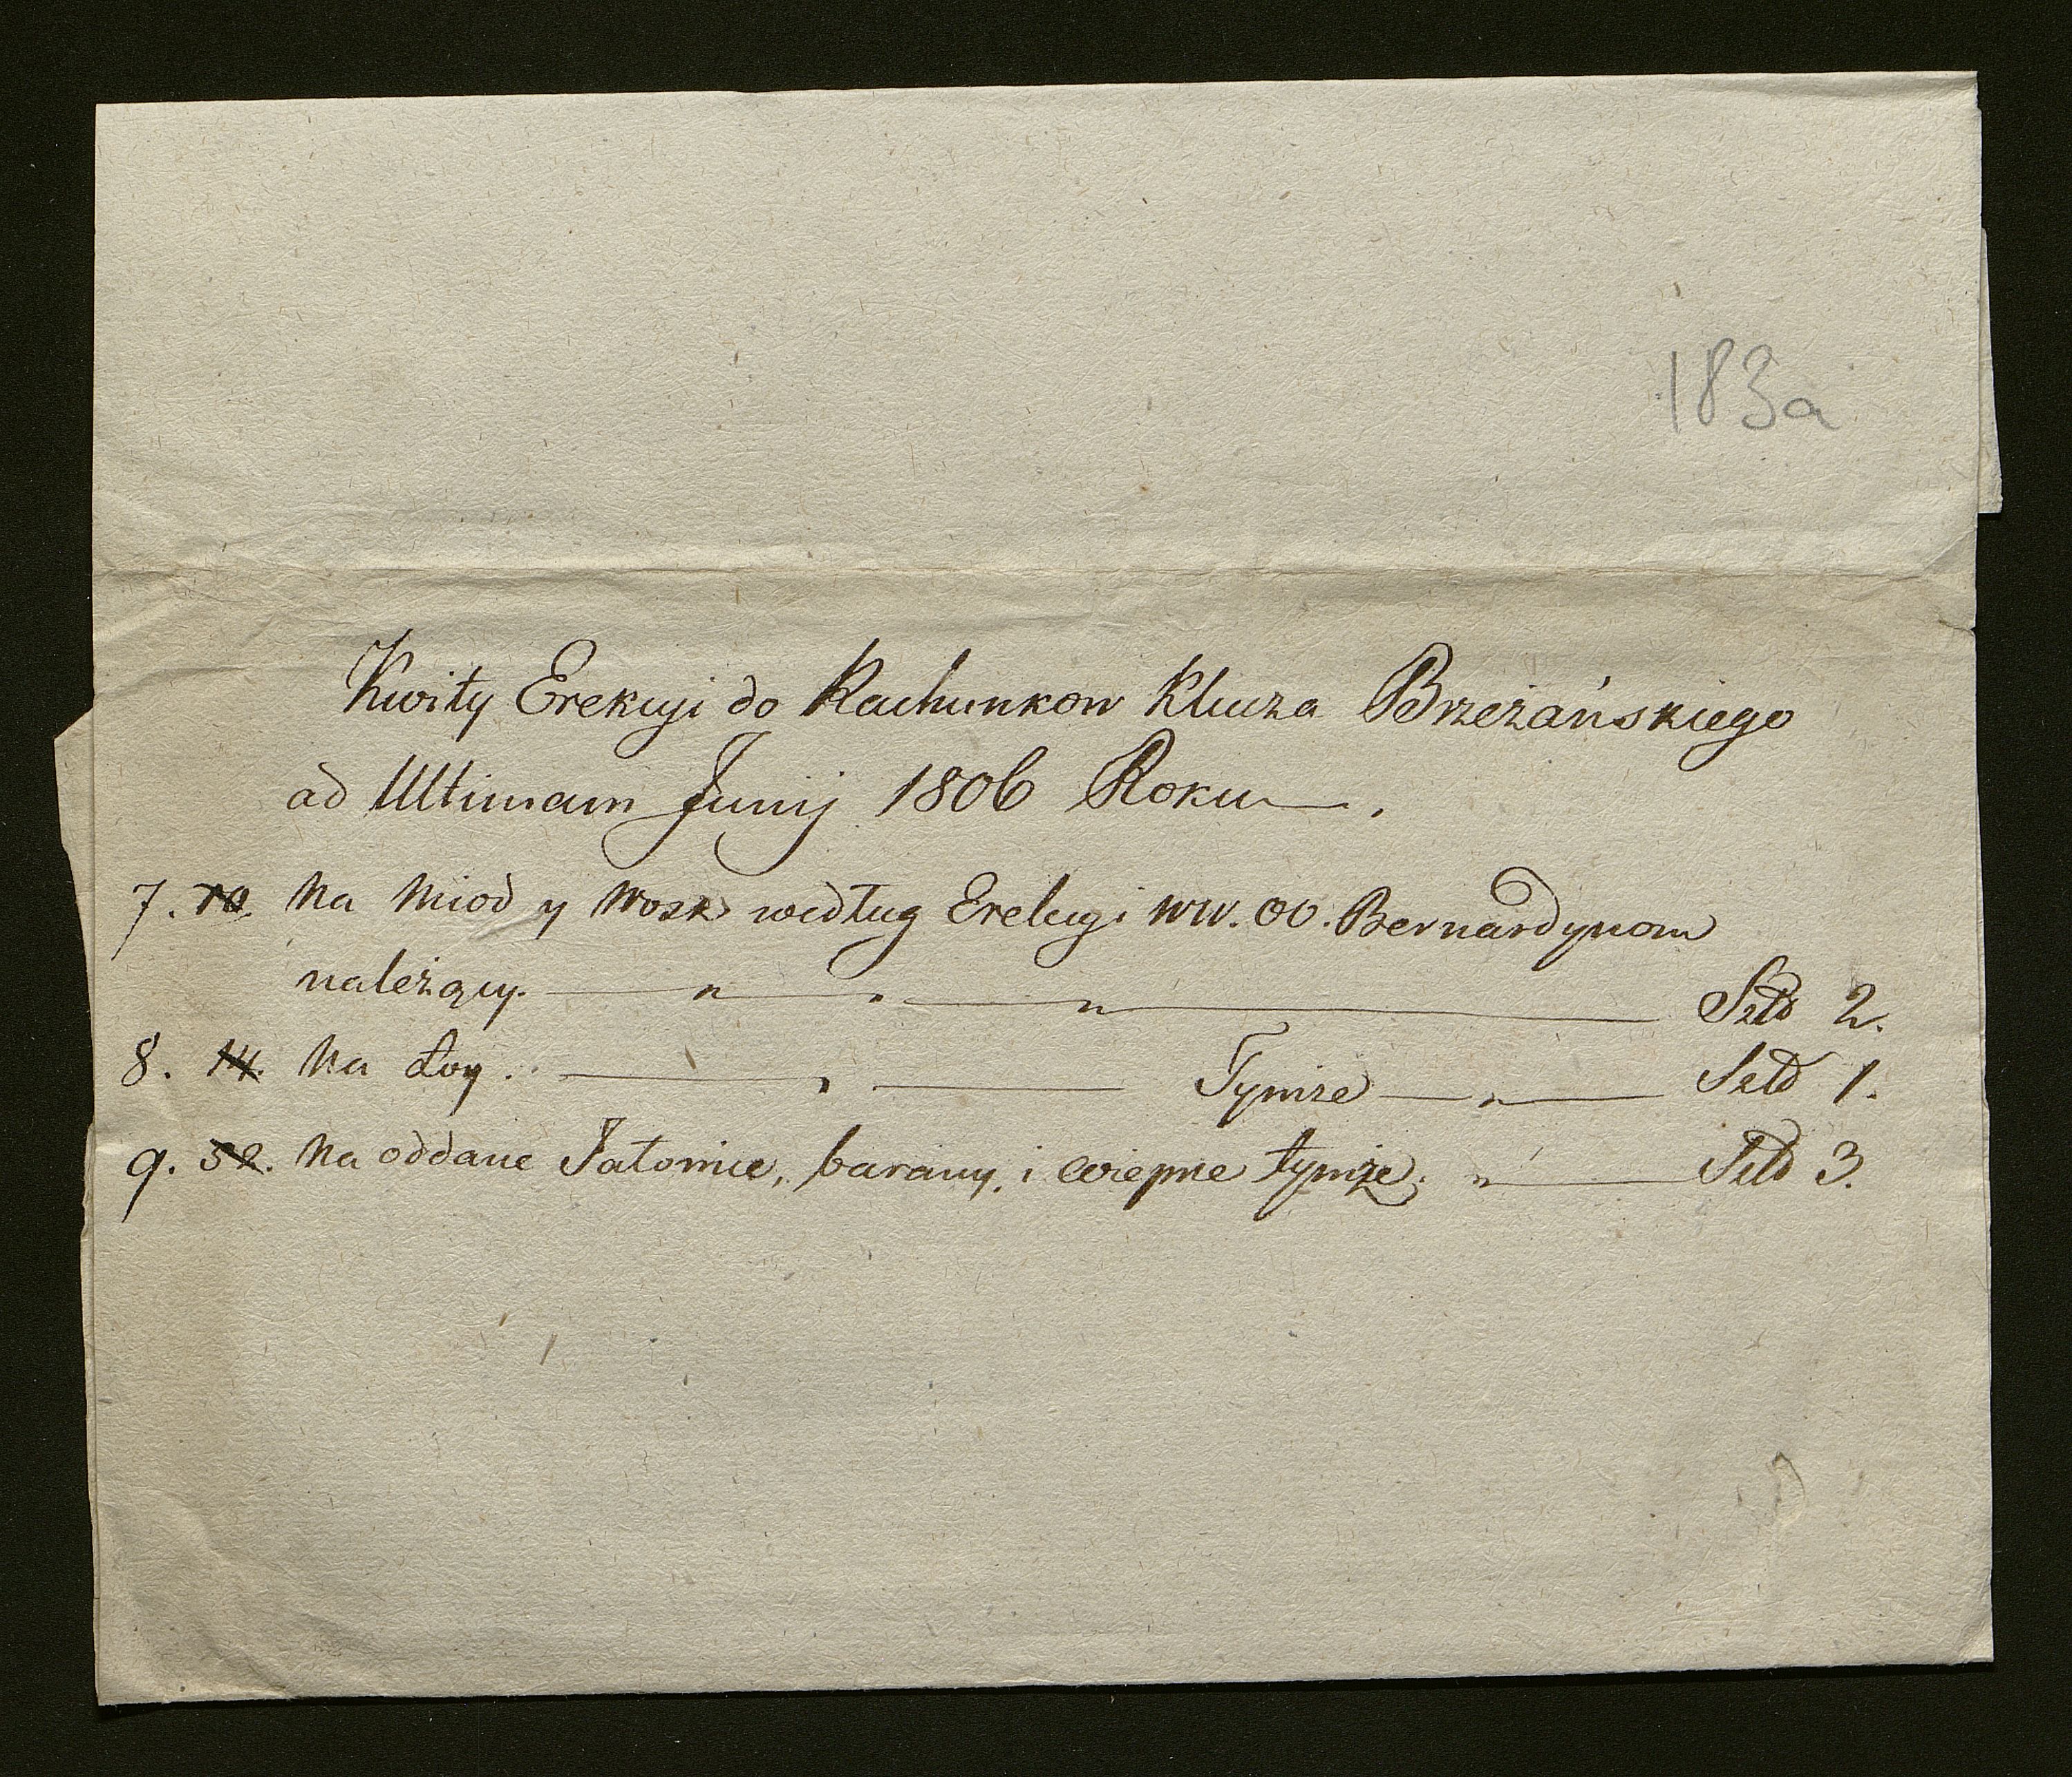 183a
Kwity Erekcyi do Rachunkow Klucza Brzeżańskiego
ad Ultimam Junij 1806 Roku
7. 10. Na Miod y Wosk według Erekcyi WW. OO. Bernardynom
należący. Sztd 2.
8. 14. Na Łoy. Tymże Sztd 1.
9. 52. Na oddane Jałowice, barany, i wieprze tymże. Sztd 3.